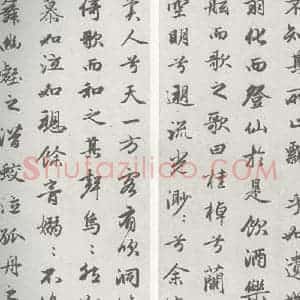 知其所止飄〻乎如遺
羽化而登仙於是飲酒樂
舷而歌之歌曰桂棹兮蘭
空明兮遡流光渺〻兮余
美人兮天一方客有吹洞
倚歌而和之其聲嗚〻然
慕如泣如愬餘音嫋〻不
舞幽壑之潛蛟泣孤舟之
Shufaziliao.com